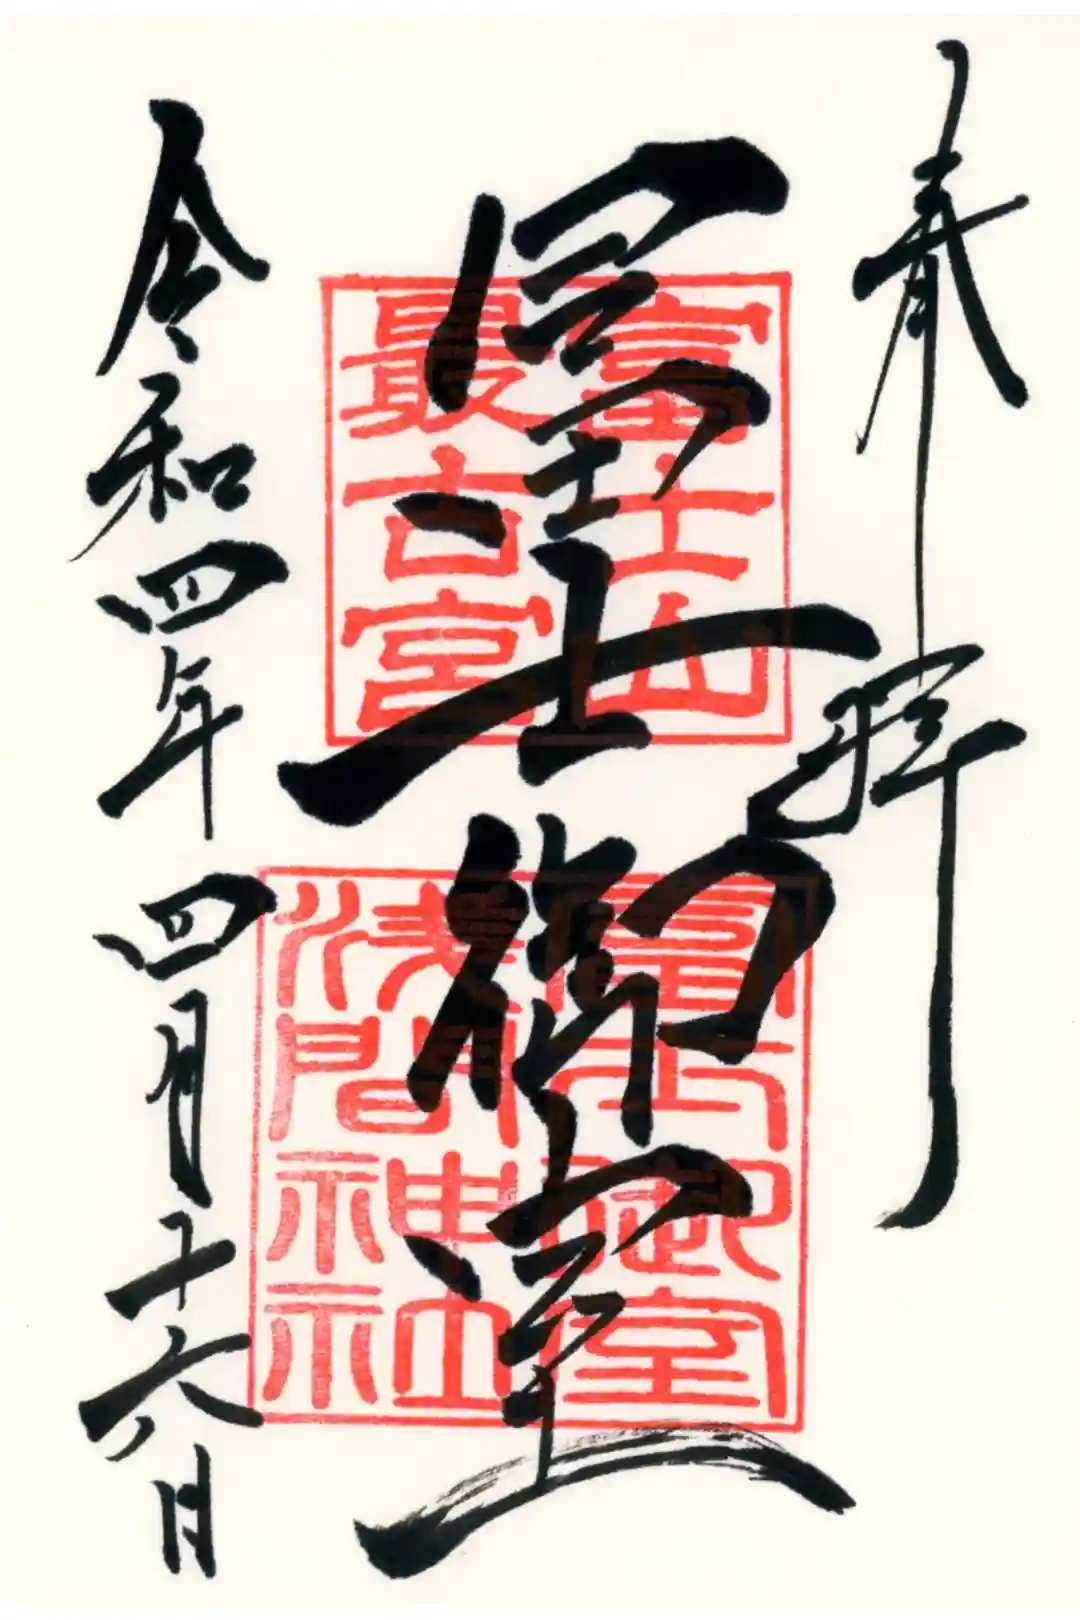 奉拝
富士山
最古宮
冨士御室
富士御室
浅間神社
令和四年四月十六日